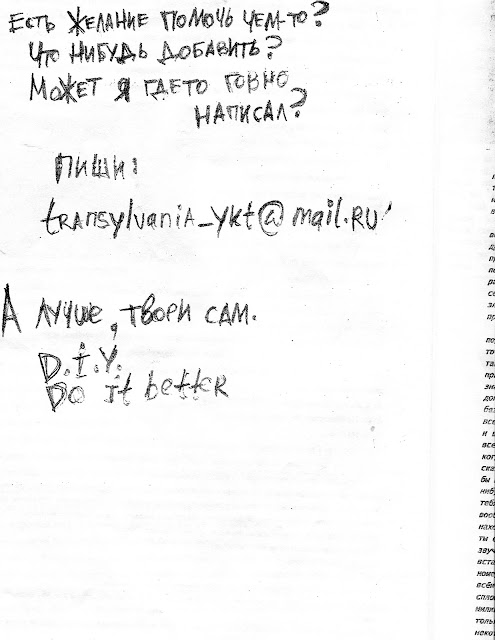 Есть желание помочь чем-то?
Что нибудь добавить?
Может я гдето говно
написал?
пиши:
transylvania_ykt@mail.ru
А лучше, твори сам.
D.I.Y.
Do it better